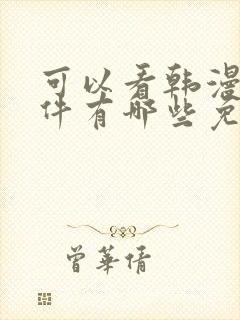 可以看韩漫
件有哪些免
曾華倩